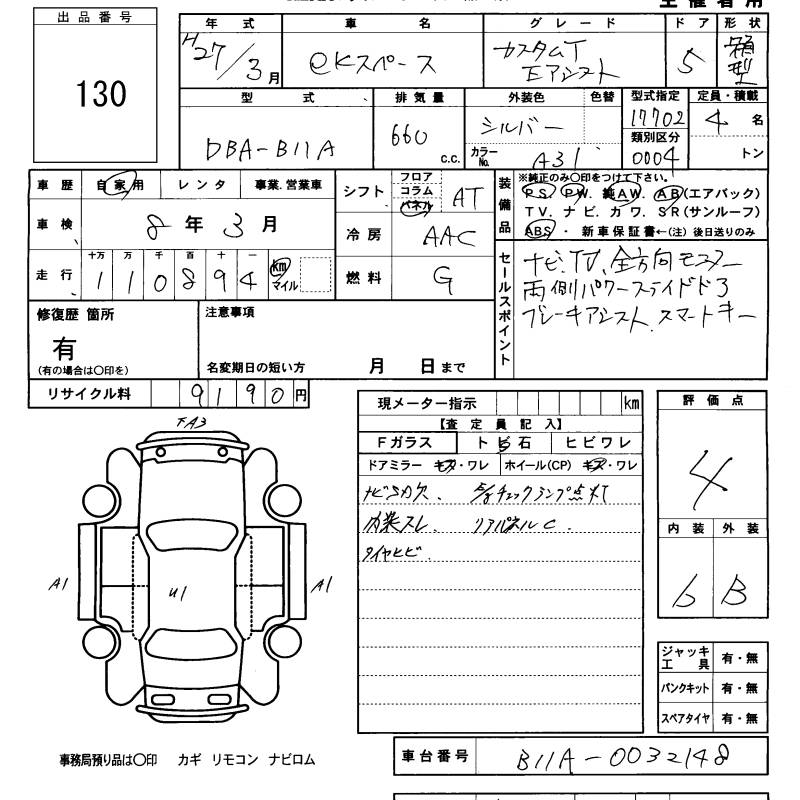 主催者用
出品番号
130
年式 車名 グレード ドア 形状
H27/3月 eKスペース カスタムT Eアシスト 5 箱型
型式 排気量 外装色 色替 型式指定 定員・積載
DBA-B11A 660 c.c. シルバー 17702 4名
カラーNo. A31 類別区分 0004 トン
車歴 自家用 レンタ 事業.営業車
車検 8年3月
走行 十万 万 千 百 十 一
110894 km マイル
シフト フロア コラム パネル AT
冷房 AAC
燃料 G
装備品 ※純正のみ〇印をつけて下さい。
PS. PW. 純AW. AB(エアバック)
TV. ナビ. カワ. SR(サンルーフ)
ABS ・ 新車保証書←(注) 後日送りのみ
セールスポイント
ナビ、TV、全方向モニター
両側パワースライドドア
ブレーキアシスト、スマートキー
修復歴 箇所
有
(有の場合は〇印を)
注意事項
名変期日の短い方 月 日まで
リサイクル料 9190円
現メーター指示 km
【査定員記入】
Fガラス トビ石 ヒビワレ
ドアミラー キズ・ワレ ホイール(CP) キズ・ワレ
チェックランプ点灯
内装スレ. リアパネルC.
タイヤヒビ.
評価点
4
内装 外装
b B
A1 U1 A1
ジャッキ工具 有・無
パンクキット 有・無
スペアタイヤ 有・無
事務局預り品は〇印 カギ リモコン ナビロム
車台番号 B11A-0032148